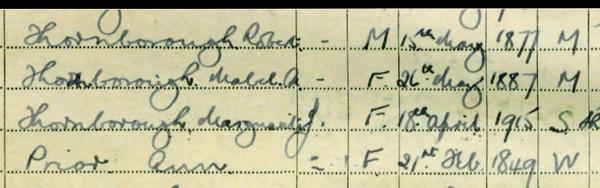 Thornborough Robert - M 15th May 1877 M
Thornborough Mabel A - F. 26th May 1887 M
Thornborough Marguerite J. F. 18th April 1915 S
Prior Ann = F. 21st Feb. 1849 W